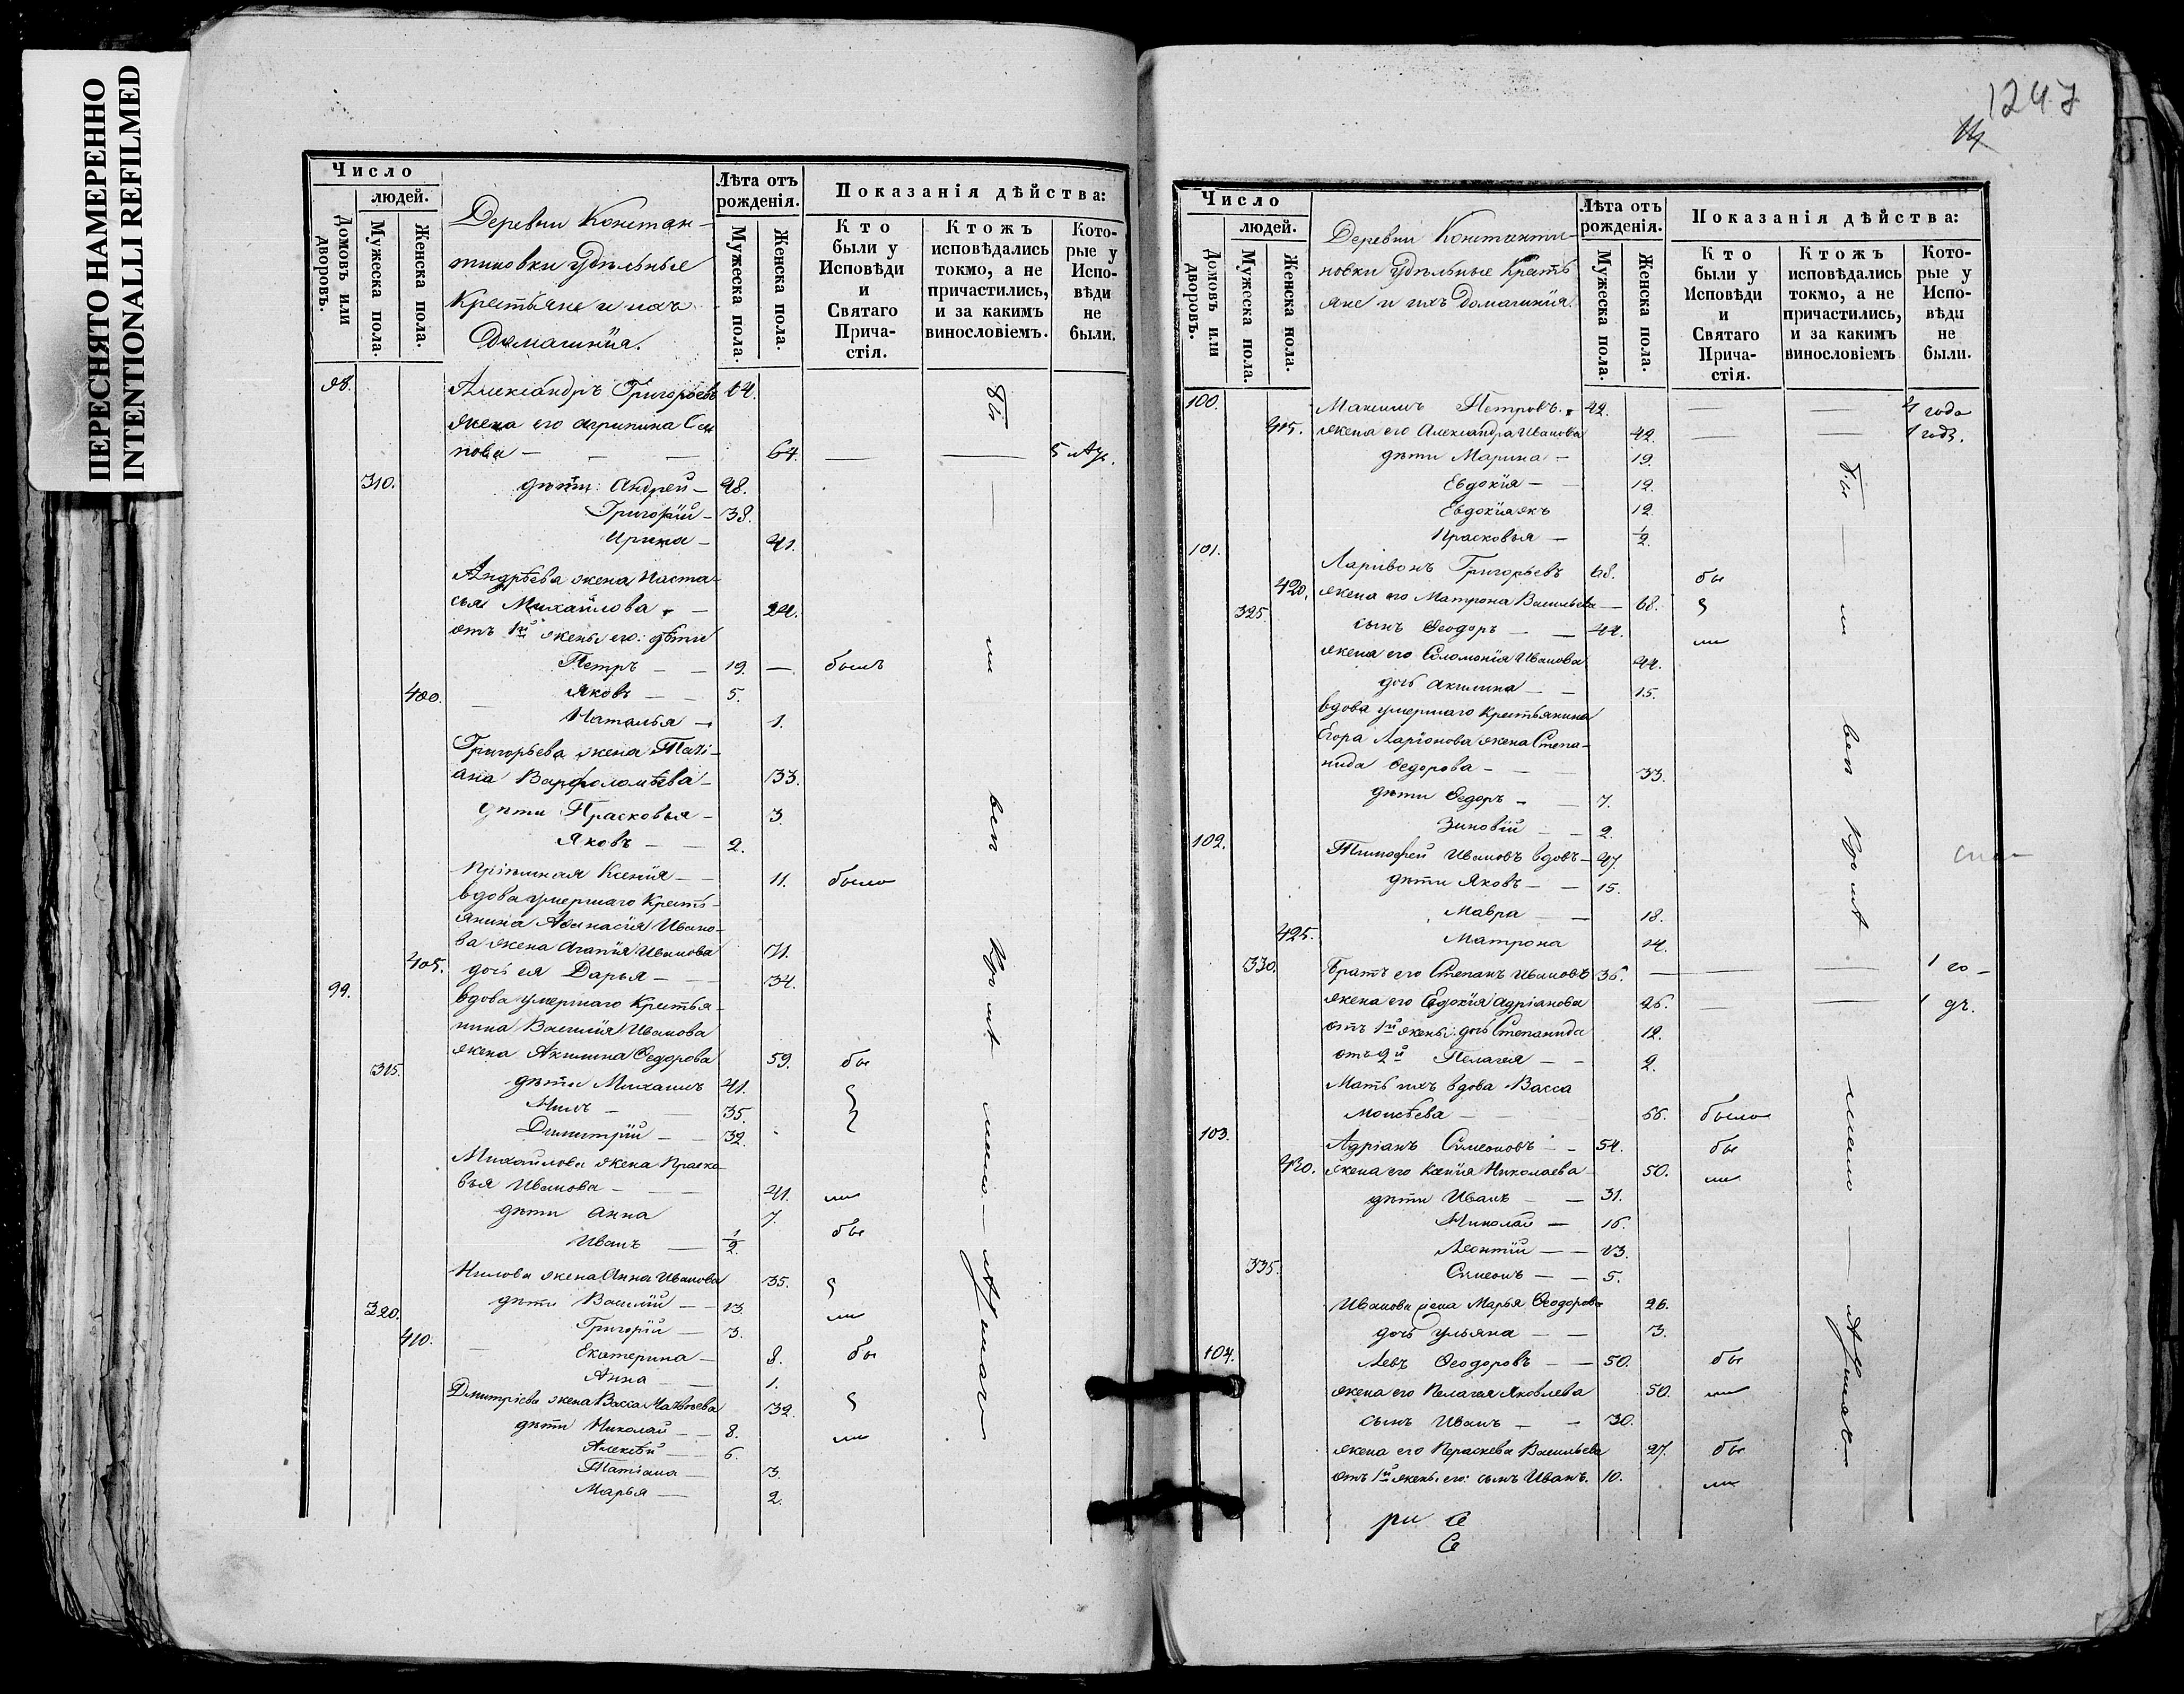 ПЕРЕСНЯТО НАМЕРЕННО
INTENTIONALLI REFILMED
Число
людей.
Домовъ или дворовъ.
Мужеска пола.
Женска пола.
Деревни Констан-
тиновки Удѣльные
Крестьяне и ихъ
Домашнія.
Лѣта отъ рожденія.
Мужеска пола.
Женска пола.
Показанія дѣйства:
Кто были у Исповѣди и Святаго Прича-стія.
Ктожъ исповѣдались токмо, а не причастились, и за какимъ винословіемъ.
Кото-рые у Испо-вѣди не были.
98. Александръ Григорьевъ 64.
жена его Агрипина Сем
нова — 64. 5
310. дѣти: Андрей — 48.
Григорій — 38.
Ирина — 41.
Андрѣева жена Наста-
сья Михайлова — 24.
отъ 1й жены его: дѣти
Петръ — 19. — былъ
400. Яковъ — 5.
Наталья — 1.
Григорьева жена Таті-
ана Варфоломѣева — 33.
дѣти Прасковья — 3.
Яковъ — 2.
Ксенія — 11. была
вдова умершаго Кресть-
янина Аѳанасія Ивано-
ва жена Агапія Иванова 71.
405. дочь ея Дарья — 34.
99. вдова умершаго Крестья-
нина Василія Иванова
жена Акилина Ѳедорова 59. бы
315. дѣти Михаилъ 41.
Нилъ — 35.
Димитрій — 32.
Михайлова жена Праско-
вья Иванова — 41. ли
дѣти Анна 7.
Иванъ — 1/2. бы
Нилова жена Анна Иванова 35.
дѣти Василій — 13. ли
320. Григорій — 3.
410. Екатерина — 8. бы
Анна — 1.
Дмитріева жена Васса Матвѣева 32.
дѣти Николай — 8. ли
Алексѣй — 6.
Татіана — 3.
Марья — 2.
1247
Число
людей.
Домовъ или дворовъ.
Мужеска пола.
Женска пола.
Деревни Константи-
новки Удѣльные Кресть
яне и ихъ Домашнія.
Лѣта отъ рожденія.
Мужеска пола.
Женска пола.
Показанія дѣйства:
Кто были у Исповѣди и Святаго Прича-стія.
Ктожъ исповѣдались токмо, а не причастились, и за какимъ винословіемъ
Кото-рые у Испо-вѣди не были.
100. Максимъ Петровъ. 42. — — 4 года
415. жена его Александра Иванова 42. — — 1 годъ.
дѣти Марина — 19.
Евдокія — 12.
Евдокія 12.
Прасковья — 1/2.
101. Ларивонъ Григорьевъ 68. бы
420. жена его Матрона Васильева — 68.
325. сынъ Ѳеодоръ — 44. ли
жена его Соломонія Иванова 44.
дочь Акилина — 15.
вдова умершаго Крестьянина
Егора Ларіонова жена Степа-
нида Ѳедорова — 33.
дѣти Ѳедоръ — 7.
Зиновій — 2.
102. Тимофей Ивановъ вдовъ — 47.
дѣти Яковъ — 15.
Мавра — 18.
425. Матрона 14.
330. Братъ его Степанъ Ивановъ 36. — — 1 го-
жена его Евдокія Адріанова 26. — — 1 дъ.
отъ 1й жены: дочь Степанида 12.
отъ 2й Пелагея — 2.
Мать ихъ вдова Васса
Моисѣева — 66. была
103. Адріанъ Сѵмеоновъ — 54. бы
430. жена его Ксенія Николаева 50. ли
дѣти Иванъ — 31.
Николай — 16.
Леонтій — 13.
335. Сѵмеонъ — 5.
Иванова жена Марья Ѳеодорова 26.
дочь Ульяна — 3.
104. Левъ Ѳеодоровъ — 50. бы
жена его Пелагея Яковлева 50. ли
сынъ Иванъ — 30.
жена его Параскева Васильева 27. бы
отъ 1й жены его: сынъ Иванъ. 10. ли